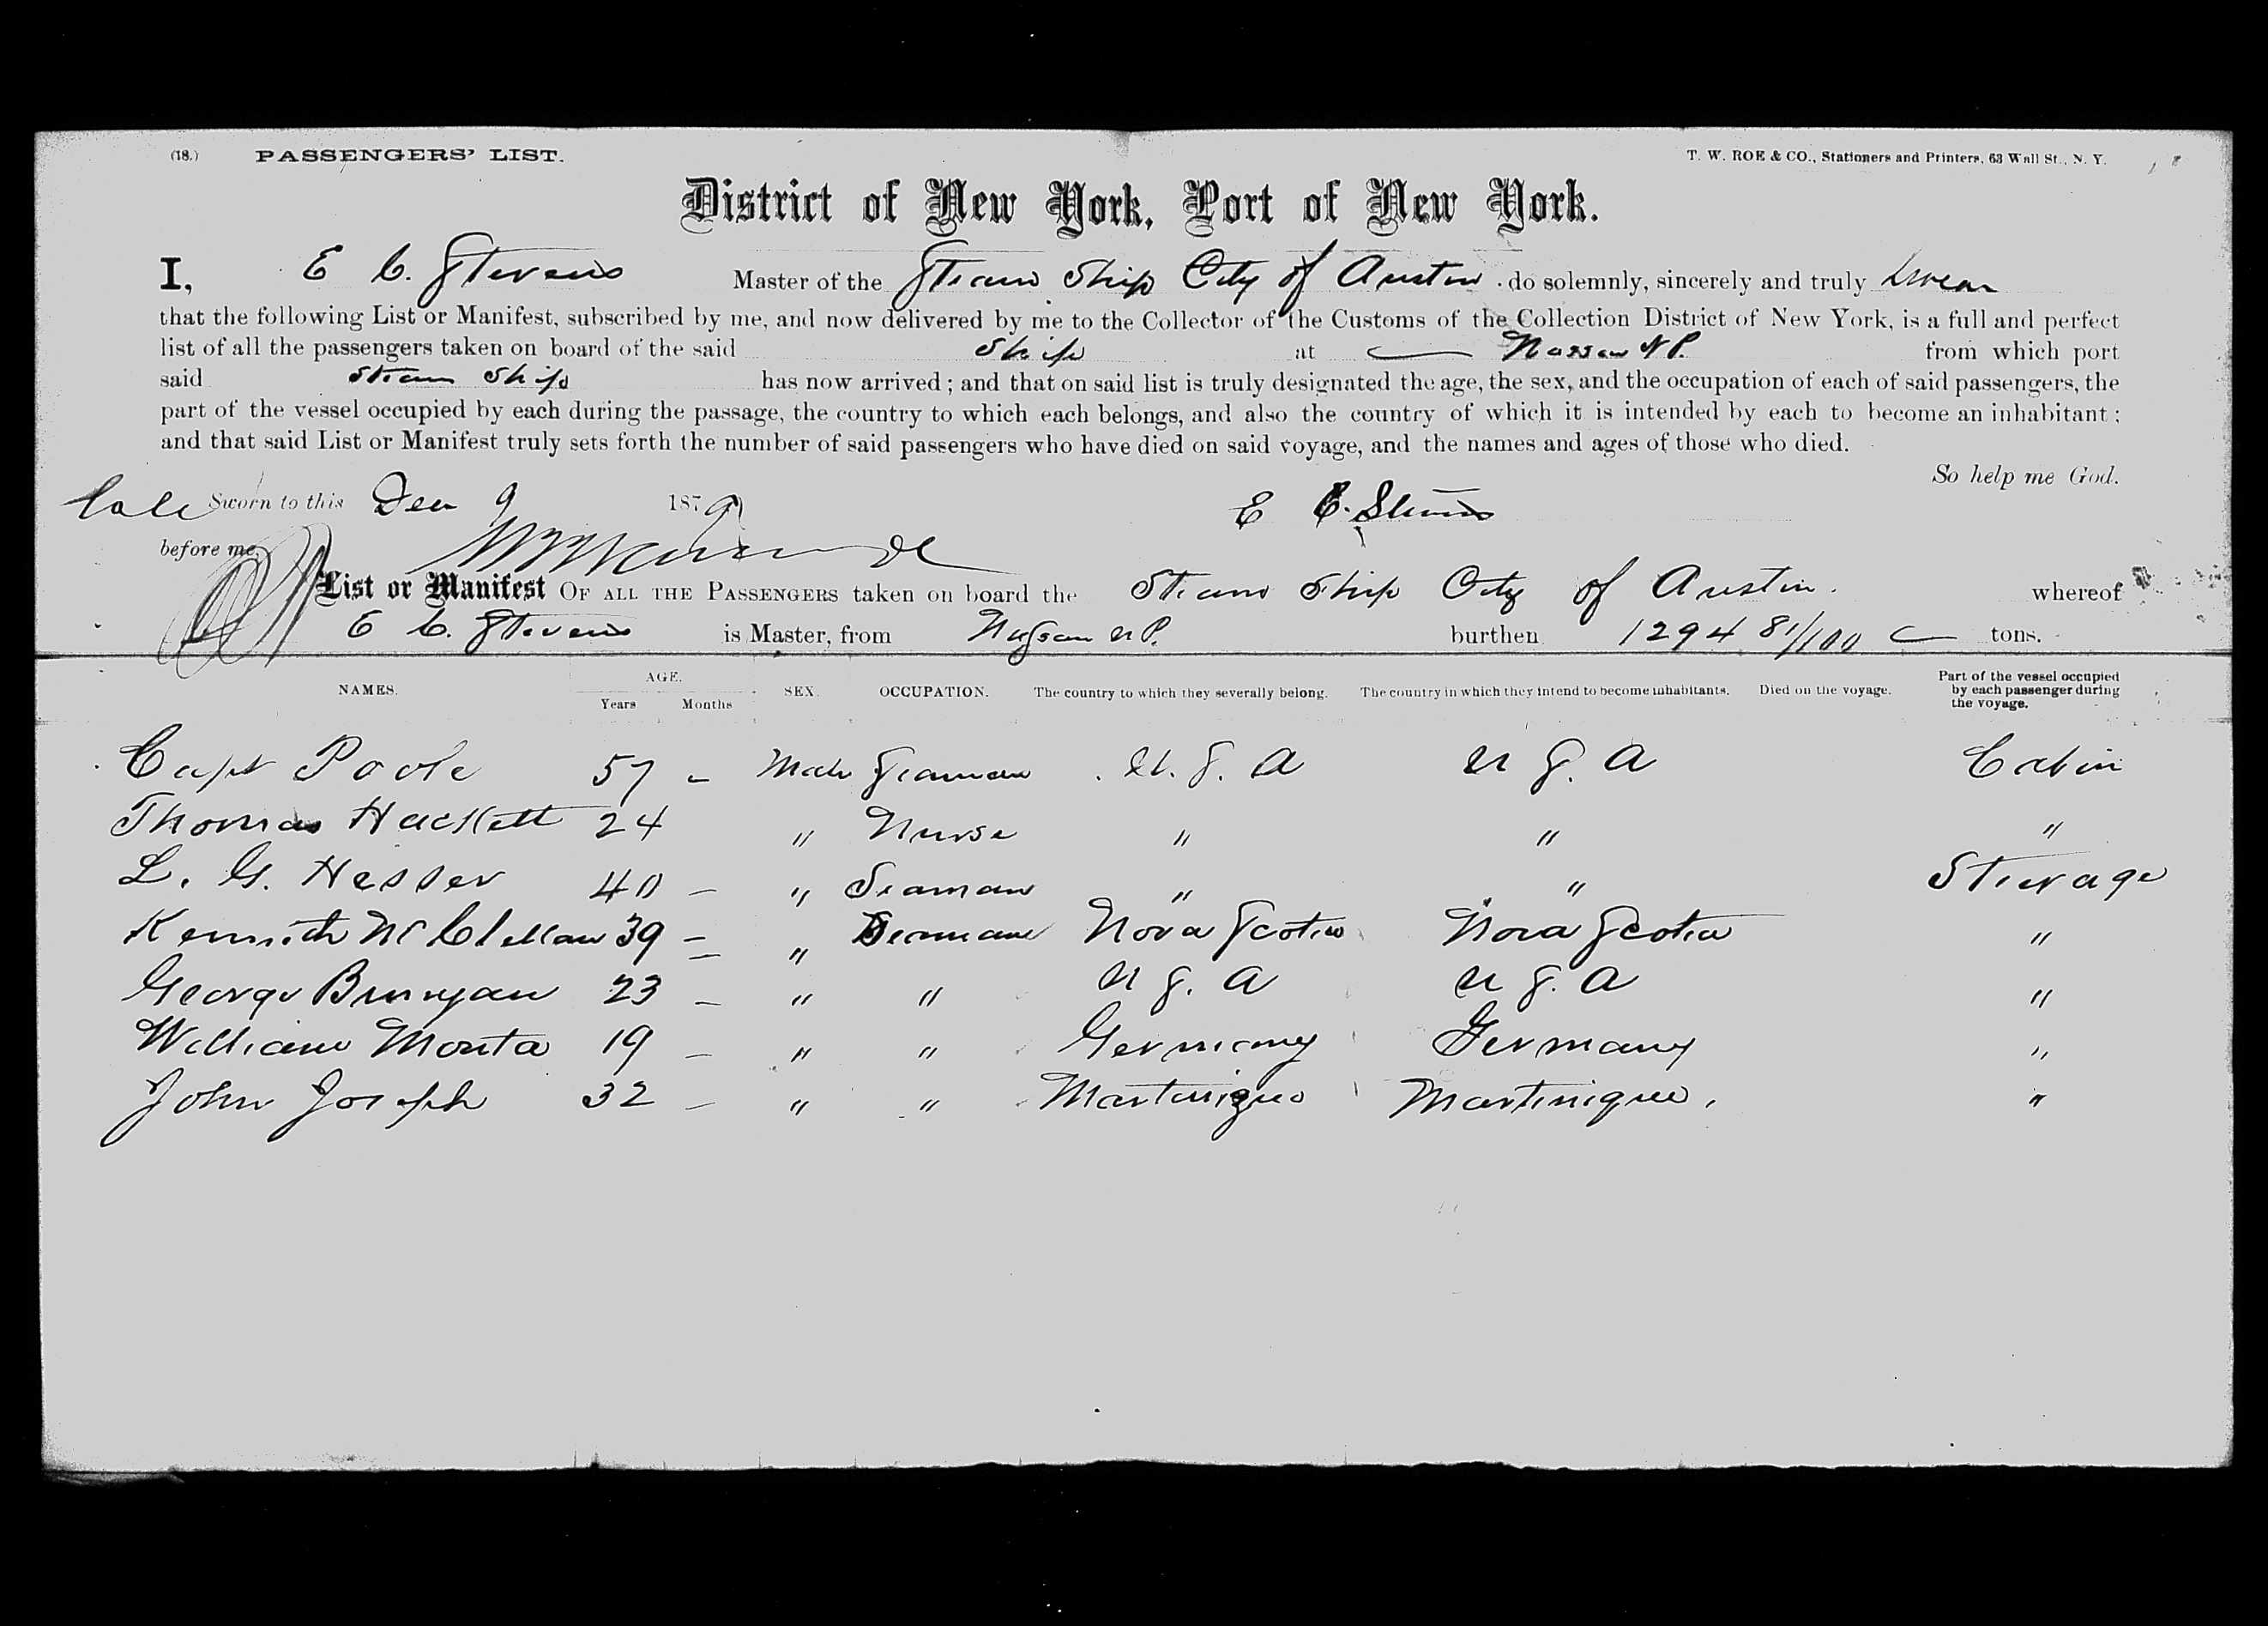 (18.) PASSENGERS' LIST. T. W. ROE & CO., Stationers and Printers, 63 Wall St., N. Y.
District of New York, Port of New York.
I, E C. Stevens Master of the Steam Ship City of Austin do solemnly, sincerely and truly swear
that the following List or Manifest, subscribed by me, and now delivered by me to the Collector of the Customs of the Collection District of New York, is a full and perfect
list of all the passengers taken on board of the said Ship at Nassau N P. from which port
said Steam Ship has now arrived; and that on said list is truly designated the age, the sex, and the occupation of each of said passengers, the
part of the vessel occupied by each during the passage, the country to which each belongs, and also the country of which it is intended by each to become an inhabitant;
and that said List or Manifest truly sets forth the number of said passengers who have died on said voyage, and the names and ages of those who died.
So help me God.
Sworn to this Dec 9 1879 E C. Stevens
before me,
List or Manifest OF ALL THE PASSENGERS taken on board the Steam Ship City of Austin. whereof
E C. Stevens is Master, from Nassau N P. burthen 1294 81/100 tons.
NAMES. AGE. Years Months SEX. OCCUPATION. The country to which they severally belong. The country in which they intend to become inhabitants. Died on the voyage. Part of the vessel occupied by each passenger during the voyage.
Capt Poole 57 – Male Seaman U. S. A U S. A Cabin
Thomas Hackett 24 " Nurse " " "
L. G. Hesser 40 – " Seaman " " Steerage
Kenneth McClellan 39 – " Seaman Nova Scotia Nova Scotia "
George Bunyan 23 – " " U S. A U S. A "
William Monta 19 – " " Germany Germany "
John Joseph 32 – " " Martinique Martinique. "